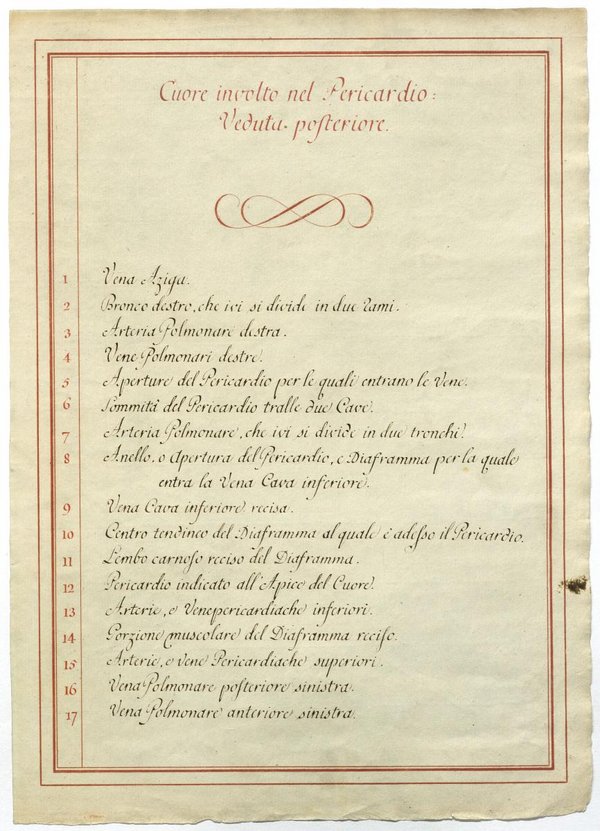 Cuore involto nel Pericardio:
Veduta posteriore.
1 Vena Aziga.
2 Bronco destro, che ivi si divide in due rami.
3 Arteria Polmonare destra.
4 Vene Polmonari destre.
5 Aperture del Pericardio per le quali entrano le Vene.
6 Sommità del Pericardio tralle due Cave.
7 Arteria Polmonare, che ivi si divide in due tronchi.
8 Anello, o Apertura del Pericardio, e Diaframma per la quale
entra la Vena Cava inferiore.
9 Vena Cava inferiore recisa.
10 Centro tendineo del Diaframma al quale è adeſso il Pericardio.
11 Lembo carnoſo reciso del Diaframma.
12 Pericardio indicato all'Apice del Cuore.
13 Arterie, e Vene pericardiache inferiori.
14 Porzione muscolare del Diaframma reciſo.
15 Arterie, e vene Pericardiache superiori.
16 Vena Polmonare poſteriore sinistra.
17 Vena Polmonare anteriore sinistra.